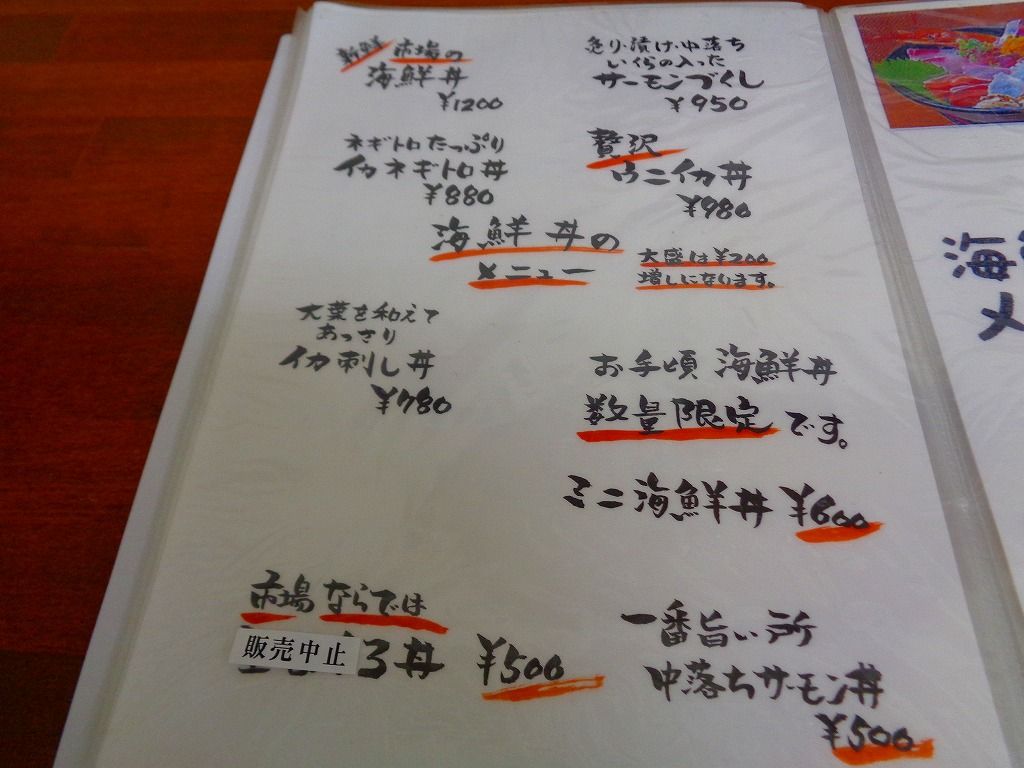 新鮮 市場の
海鮮丼
¥1200
炙り・漬け・中落ち
いくらの入った
サーモンづくし
¥950
ネギトロたっぷり
イカネギトロ丼
¥880
贅沢
ウニイカ丼
¥980
海鮮丼の
メニュー
大盛は¥200
増しになります。
大葉を和えて
あっさり
イカ刺し丼
¥780
お手頃 海鮮丼
数量限定です。
ミニ海鮮丼 ¥600
市場ならでは
販売中止 ろ丼 ¥500
一番旨い所
中落ちサーモン丼
¥500
海
メ